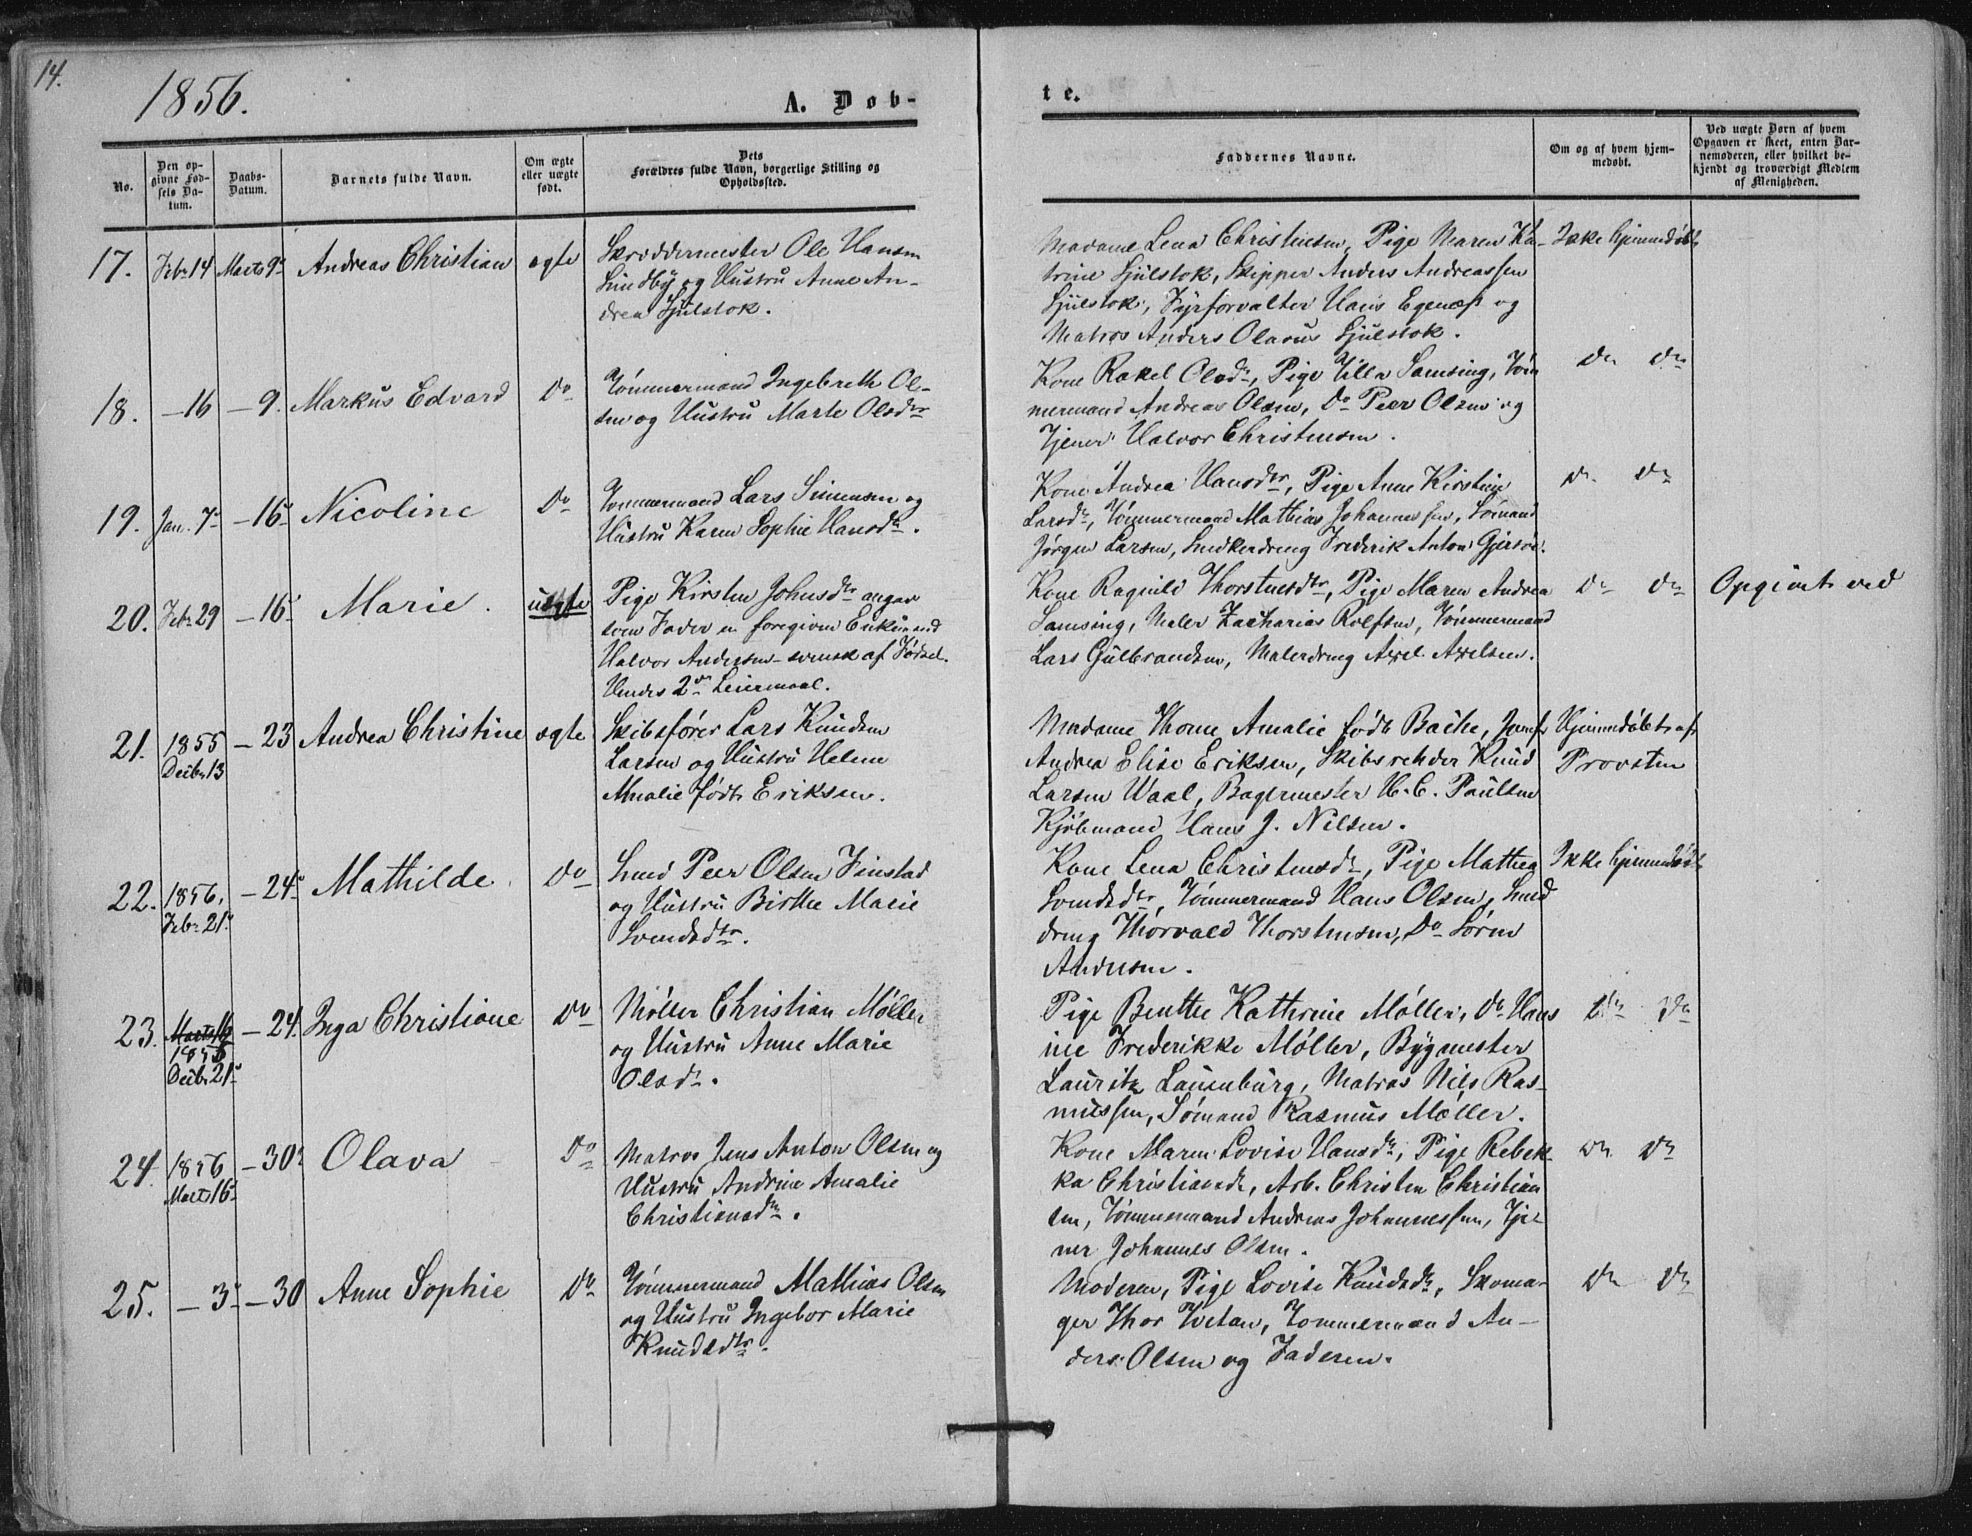 14.
1856.
A. Døb-
te.
No.
Den op-
givne Fød-
sels Da-
tum.
Daabs-
Datum.
Barnets fulde Navn.
Om ægte
eller uægte
født.
Dets
Forældres fulde Navn, borgerlige Stilling og
Opholdssted.
Faddernes Navne.
Om og af hvem hjem-
medøbt.
Ved uægte Børn af hvem
Opgaven er skeet, enten Bar-
nemoderen, eller hvilket be-
kjendt og troværdigt Medlem
af Menigheden.
17. Febr 14 Marts 9 Andreas Christian ægte
Skræddermester Ole Hansen
Lindby og Hustru Anne An-
drea Hjulstok.
Madame Lena Christensen, Pige Maren Ka-
trine Hjulstok, Skipper Anders Andreassen
Hjulstok, Fyrforvalter Hans Egenæs og
Matros Anders Olavus Hjulstok.
Ikke hjemmedøbt
18. -16 -9. Markus Edvard Do
Tømmermand Ingebreth Ol-
sen og Hustru Marte Olsdtr
Kone Rakel Olsdr, Pige Ulla Samsing, Tøm
mermand Andreas Olsen, Do Peer Olsen og
Tjener Halvor Christensen.
Do Do
19. Jan. 7 -16 Nicoline Do
Tømmermand Lars Simensen og
Hustru Karen Sophie Hansdr.
Kone Andrea Hansdtr, Pige Anne Kirstine
Larsdr, Tømmermand Mathias Johannessen, Sømand
Jørgen Larsen, Snedkerdreng Frederik Anton Gjersøe.
Do Do
20. Febr 29 -16 Marie. uægte
Pige Kirsten Johnsdtr angav
som Fader en foregiven Enkemand
Halvor Andersen - svensk af Fødsel.
Hendes 2det Leiermaal.
Kone Ragnild Thorstensdtr, Pige Maren Andrea
Samsing, Maler Zacharias Rolfsen, Tømmermand
Lars Gulbrandsen, Malerdreng Axel Axelsen.
Do Do
Opgivet ved
21. 1855
Decbr 13
-23 Andrea Christine ægte
Skibsfører Lars Knudsen
Larsen og Hustru Helene
Amalie født Eriksen.
Madame Thone Amalie født Bache, Jomfr
Andrea Elise Eriksen, Skibsrehder Knud
Larsen Waal, Bagermester H. C. Paulsen
Kjøbmand Hans J. Nilsen.
Hjemmedøbt af
Provsten
22. 1856.
Febr 21
-24 Mathilde. Do
Smed Peer Olsen Finstad
og Hustru Birthe Marie
Svendsdtr.
Kone Lena Christensdr, Pige Mathea
Svendsdtr, Tømmermand Hans Olsen, Smed
dreng Thorvald Thorstensen, Do Søren
Andersen.
Ikke hjemmedøbt
23. Marts 16
1855
Decbr 21
-24. Inga Christiane Do
Møller Christian Møller
og Hustru Anne Marie
Olsdr.
Pige Benthe Kathrine Møller, Do Hans
ine Frederikke Møller, Bygmester
Lauritz Lauenburg, Matros Nils Ras-
mussen, Sømand Rasmus Møller.
Do Do
24. 1856
Marts 16
-30 Olava Do
Matros Jens Anton Olsen og
Hustru Andrine Amalie
Christiansdtr.
Kone Maren Lovise Hansdr, Pige Rebek-
ka Christiansdr, Arb. Christen Christian
sen, Tømmermand Andreas Johannessen, Tje-
ner Johannes Olsen.
Do Do
25. -3 -30 Anne Sophie Do
Tømmermand Mathias Olsen
og Hustru Ingebor Marie
Knudsdtr.
Moderen, Pige Lovise Knudsdr, Skoma-
ger Thor Tvetan, Tømmermand An-
ders Olsen og Faderen.
Do Do